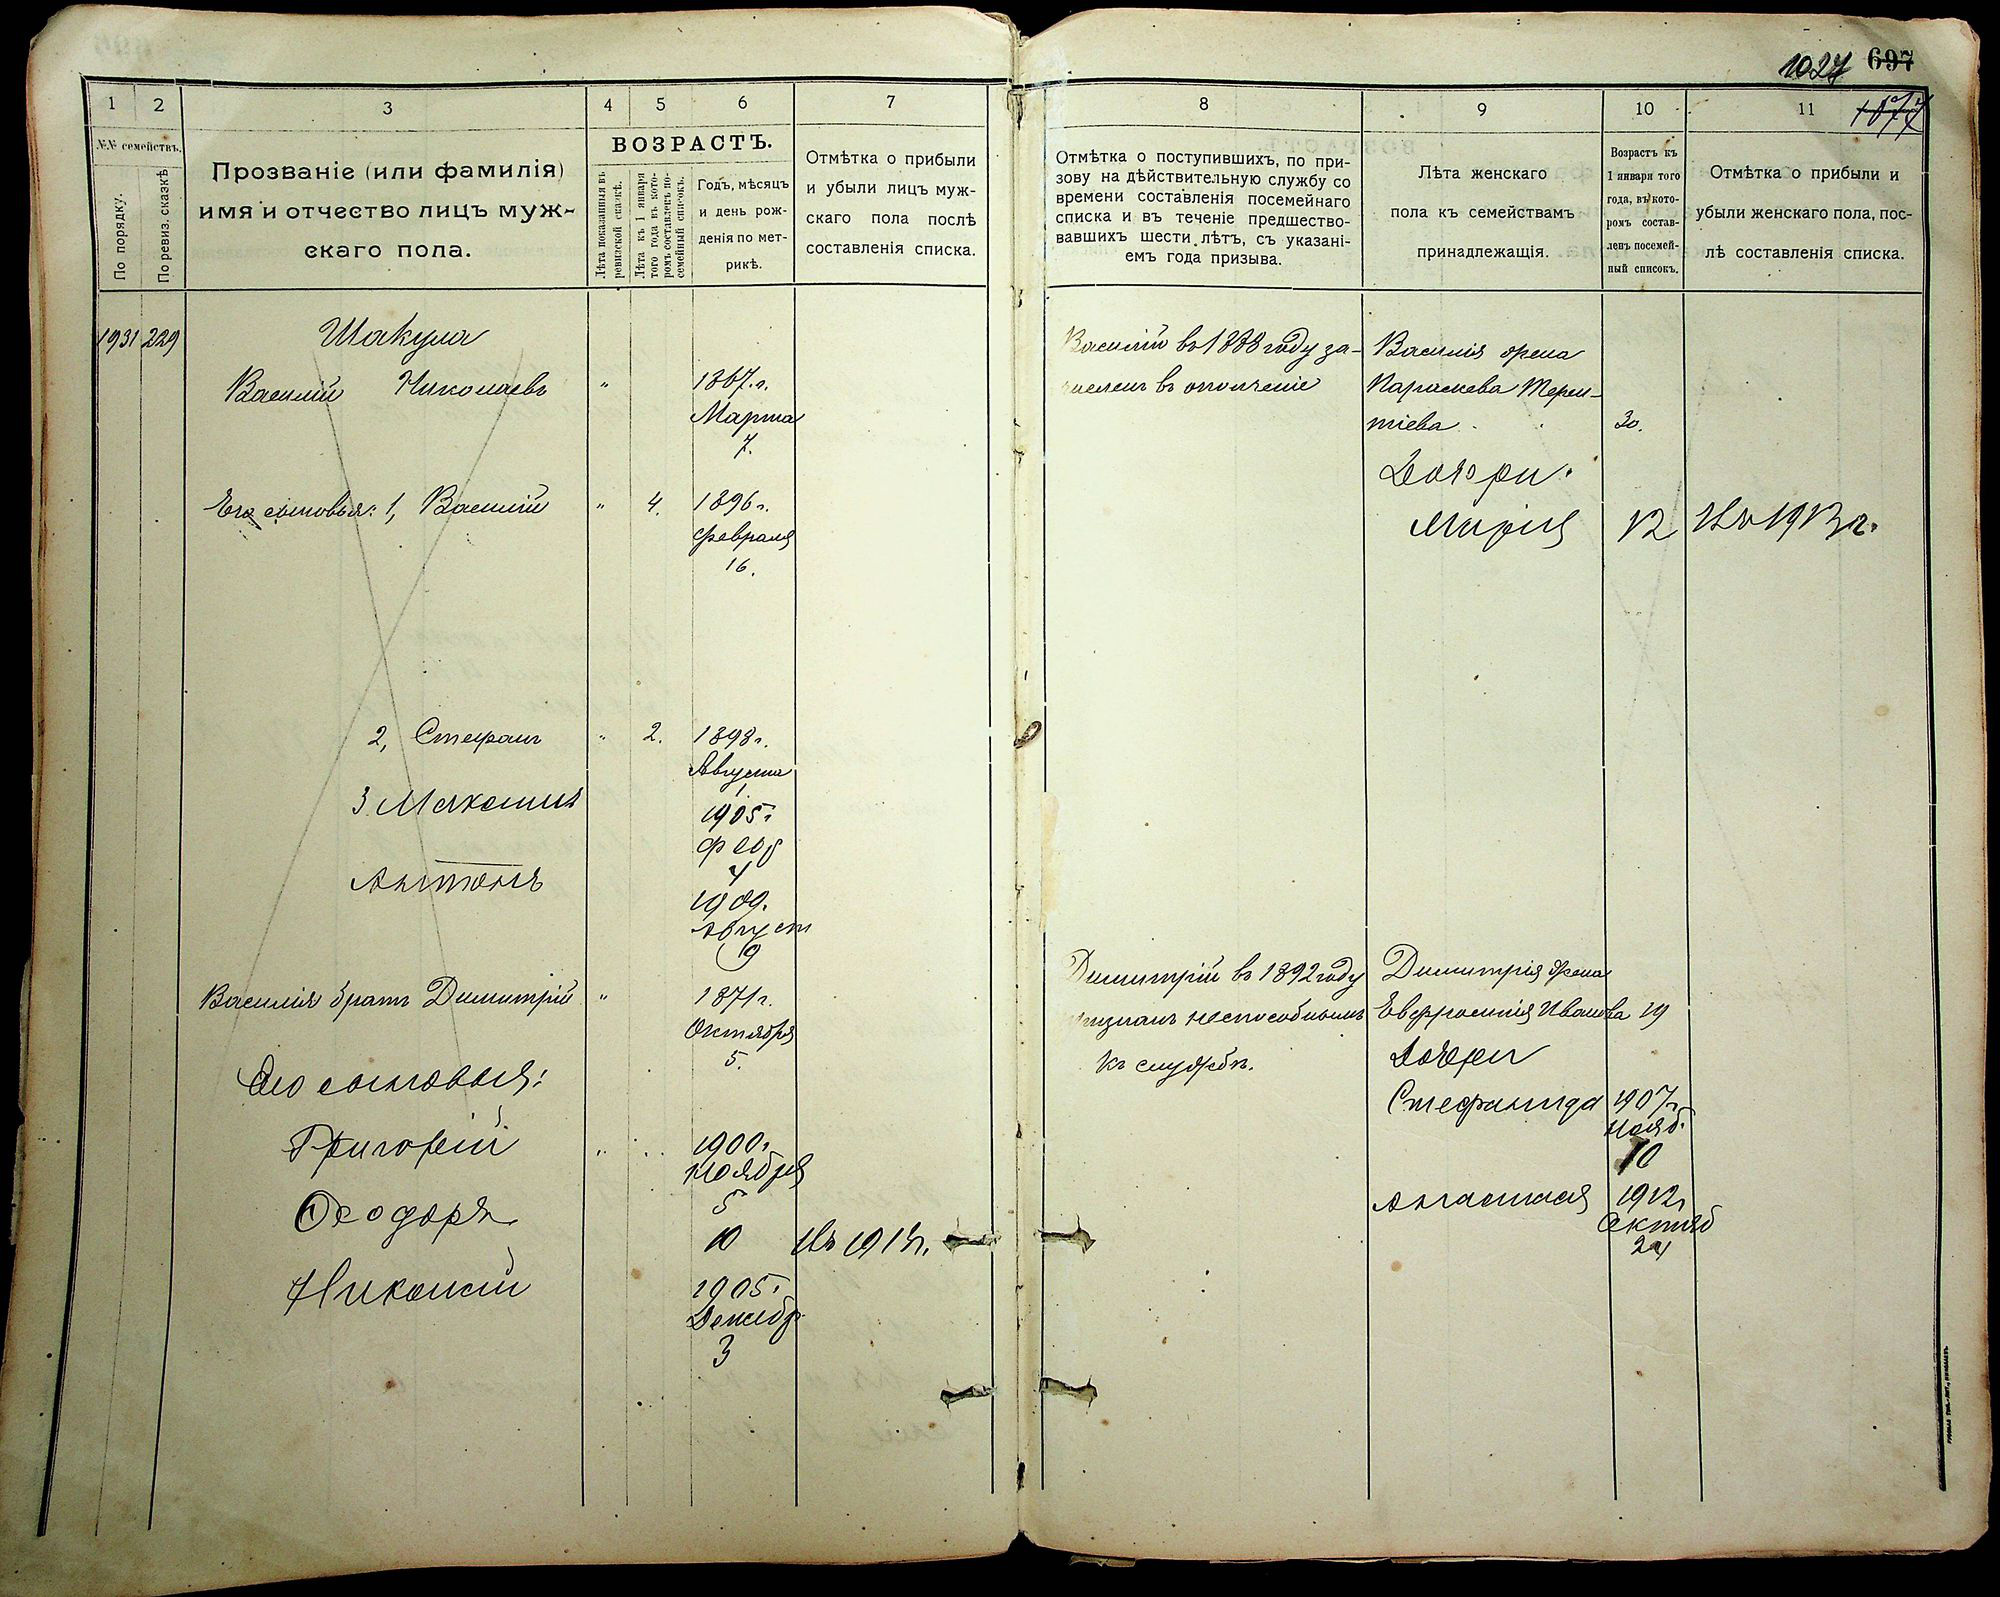 1027 697
1077
1 2 3 4 5 6 7
№№ семействъ.
По порядку.
По ревиз. сказкѣ
Прозваніе (или фамилія)
имя и отчество лицъ муж-
скаго пола.
ВОЗРАСТЪ.
Лѣта показанныя въ
ревизской сказкѣ.
Лѣта къ 1 января
того года въ кото-
ромъ составленъ по-
семейный списокъ.
Годъ, мѣсяцъ
и день рож-
денія по мет-
рикѣ.
Отмѣтка о прибыли
и убыли лицъ муж-
скаго пола послѣ
составленія списка.
1931 229 Шакула
Василій Николаевъ " 1867.г.
Марта
7.
Его сыновья: 1, Василій " 4. 1896г.
февраля
16.
2, Стефанъ " 2. 1898г.
Августа
1
3 Максимъ 1905г
фев
4
Антонъ 1909.
Август
9
Василія братъ Димитрій " 1871г.
Октября
5.
Его сыновья:
Григорій " 1900г
ноября
5
Ѳеодоръ 10 Ик 1913г.
Николай 1905г
Декабр
3
8 9 10 11
Отмѣтка о поступившихъ, по при-
зову на дѣйствительную службу со
времени составленія посемейнаго
списка и въ теченіе предшество-
вавшихъ шести лѣтъ, съ указані-
емъ года призыва.
Лѣта женскаго
пола къ семействамъ
принадлежащія.
Возрастъ къ
1 января того
года, въ кото-
ромъ состав-
ленъ посемей-
ный списокъ.
Отмѣтка о прибыли и
убыли женскаго пола, пос-
лѣ составленія списка.
Василій въ 1888 году за-
численъ въ ополченіе
Василія жена
Параскева Терен-
тіева 30.
Дочери:
Марія 12 Ик 1913г.
Димитрій въ 1892 году
признанъ неспособнымъ
къ службѣ.
Димитрія жена
Евфросинія Иванова 19
Дочери
Стефанида 1907г
нояб.
10
Анастасія 1912г
Октяб
24